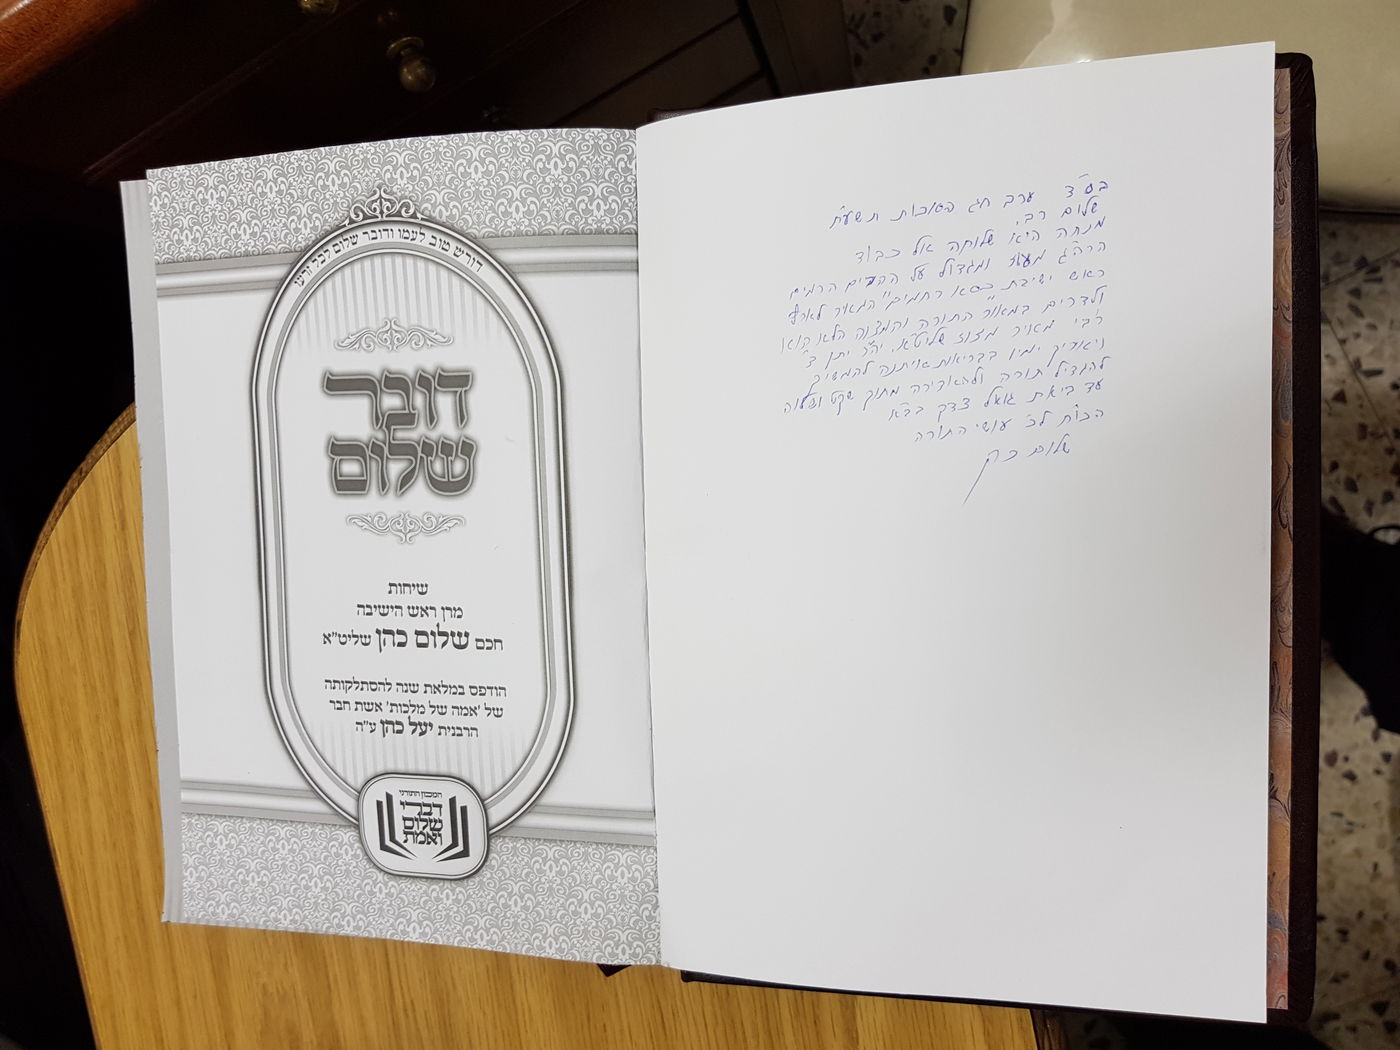 בס״ד ערב חג הסוכות תשע״ח
שלום רב,
מנחה היא שלוחה אל כבוד
הרה״ג מעוז ומגדול על ההרים הרמים
ראש ישיבת "כסא רחמים" המאיר לארץ
ולדרים במאור התורה והמצוה הלא הוא
רבי מאיר מזוז שליט״א, יה״ר יתן ה׳
ויאריך ימיו בבריאות איתנה להמשיך
להגדיל תורה ולהאדירה מתוך שקט ושלוה
עד ביאת גואל צדק בב״א
הכו״ח לכ׳ עושי התורה
שלום כהן
דורש טוב לעמו ודובר שלום לכל זרעו
דובר
שלום
שיחות
מרן ראש הישיבה
חכם שלום כהן שליט״א
הודפס במלאת שנה להסתלקותה
של 'אמה של מלכות' אשת חבר
הרבנית יעל כהן ע״ה
המכון התורני
דברי
שלום
ואמת